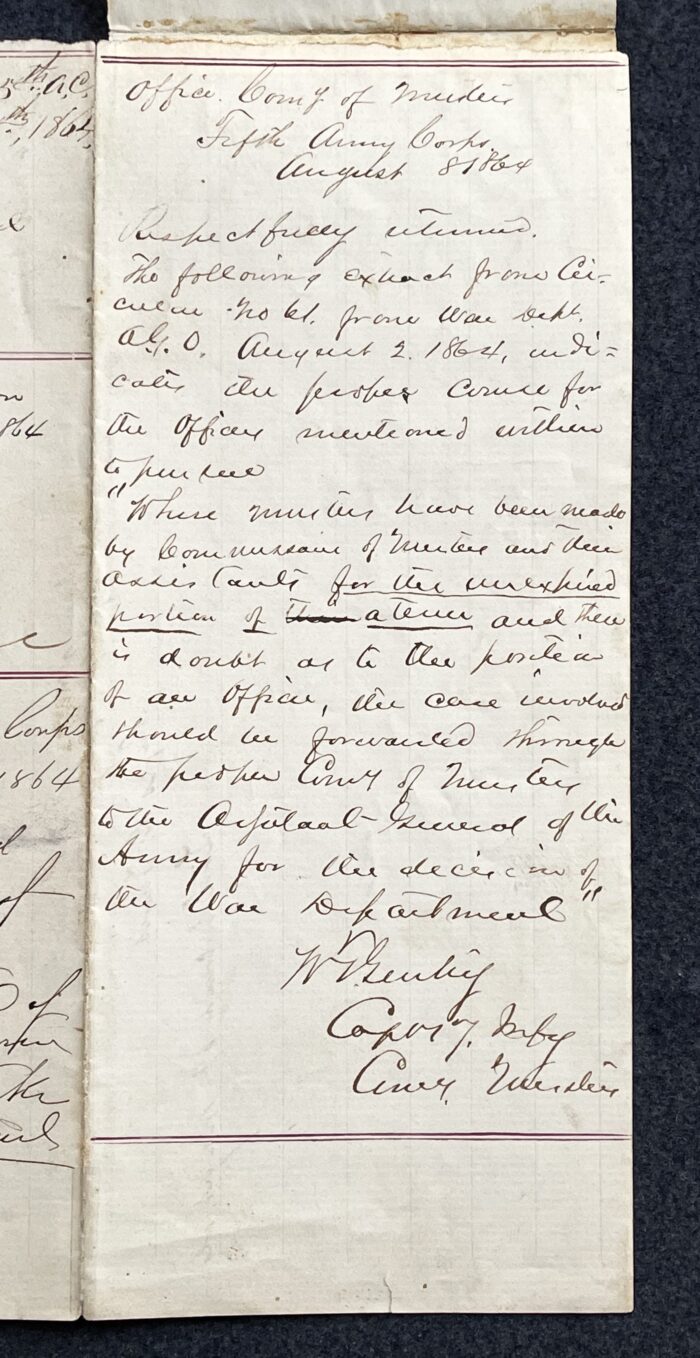 5th A.C.
th, 1864
on
864
Corps
1864
of
of
Office. Comy of Musters
Fifth Army Corps.
August 8 1864
Respectfully returned.
The following extract from Cir=
cular No 61. from War Dept.
A.G.O. August 2. 1864, indi=
cates the proper course for
the Officers mentioned within
to pursue
"Where musters have been made
by Commissaries of Musters and their
assistants for the unexpired
portion of their a term and there
is doubt as to the position
of an Officer, the case involved
should be forwarded through
the proper Comy of Musters
to the Adjutant General of the
Army for the decision of
the War Department"
Capt 17. Infy
Comy. Musters